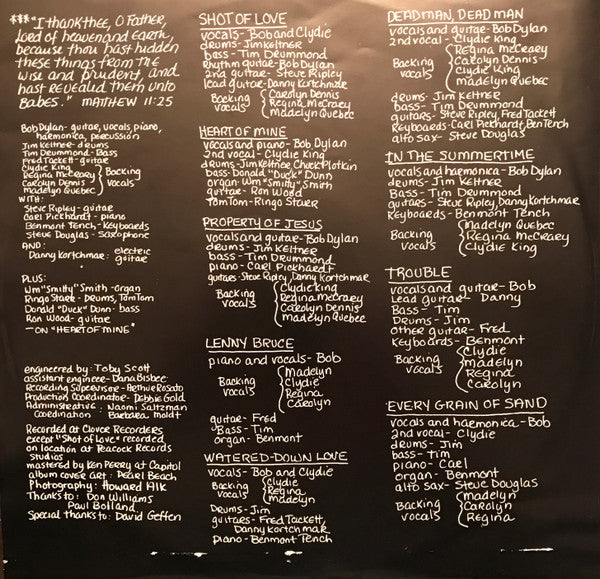 ***"I thank thee, O Father,
Lord of heaven and Earth,
because thou hast hidden
these things from the
wise and prudent, and
hast revealed them unto
Babes." MATTHEW 11:25
Bob Dylan - guitar, vocals, piano,
harmonica, percussion
Jim Keltner - drums
Tim Drummond - Bass
Fred Tackett - guitar
Clydie King
Regina McCrary
Carolyn Dennis
Madelyn Quebec
Backing
vocals
WITH:
Steve Ripley - guitar
Carl Pickhardt - piano
Benmont Tench - Keyboards
Steve Douglas - Saxophone
AND:
Danny Kortchmar: electric
guitar
PLUS:
Wm "Smitty" Smith - organ
Ringo Starr - Drums, TomTom
Donald "Duck" Dunn - bass
Ron Wood - guitar
— ON "HEART OF MINE"
engineered by: Toby Scott
assistant engineer - Dana Bisbee
Recording Supervisor - Arthur Rosato
Production Coordinator - Debbie Gold
Administrative: Naomi Saltzman
Coordination: Barbara Moldt
Recorded at Clover Recorders
except "Shot of Love" recorded
on location at Peacock Records
Studios
mastered by Ken Perry at Capitol
album cover art: Pearl Beach
Photography: Howard Alk
Thanks to: Don Williams
Paul Bolland
Special thanks to: David Geffen
SHOT OF LOVE
vocals - Bob and Clydie
drums - Jim Keltner
bass - Tim Drummond
Rhythm guitar - Bob Dylan
2nd guitar - Steve Ripley
lead guitar - Danny Kortchmar
Backing
vocals
Carolyn Dennis
Regina McCrary
Madelyn Quebec
HEART OF MINE
vocals and piano - Bob Dylan
2nd vocal - Clydie King
drums - Jim Keltner, Chuck Plotkin
bass - Donald "Duck" Dunn
organ Wm "Smitty" Smith
guitar - Ron Wood
TomTom - Ringo Starr
PROPERTY OF JESUS
vocals and guitar - Bob Dylan
drums - Jim Keltner
bass - Tim Drummond
piano - Carl Pickhardt
guitars - Steve Ripley, Danny Kortchmar
Backing
vocals
Clydie King
Regina McCrary
Carolyn Dennis
Madelyn Quebec
LENNY BRUCE
piano and vocals - Bob
Backing
vocals
Madelyn
Clydie
Regina
Carolyn
guitar - Fred
Bass - Tim
organ - Benmont
WATERED-DOWN LOVE
vocals - Bob and Clydie
Backing
vocals
Clydie
Regina
Madelyn
Drums - Jim
guitars - Fred Tackett,
Danny Kortchmar
piano - Benmont Tench
DEAD MAN, DEAD MAN
vocals and guitar - Bob Dylan
2nd vocal - Clydie King
Backing
vocals
Regina McCrary
Carolyn Dennis
Clydie King
Madelyn Quebec
drums - Jim Keltner
bass - Tim Drummond
guitars - Steve Ripley, Fred Tackett
Keyboards - Carl Pickhardt, Ben Tench
alto sax - Steve Douglas
IN THE SUMMERTIME
vocals and harmonica - Bob Dylan
drums - Jim Keltner
Bass - Tim Drummond
guitars - Steve Ripley, Danny Kortchmar
Keyboards - Benmont Tench
Backing
vocals
Madelyn Quebec
Regina McCrary
Clydie King
TROUBLE
vocals and guitar - Bob
Lead guitar - Danny
Bass - Tim
Drums - Jim
other guitar - Fred
Keyboards - Benmont
Backing
vocals
Clydie
Madelyn
Regina
Carolyn
EVERY GRAIN OF SAND
vocals and harmonica - Bob
2nd vocal - Clydie
drums - Jim
bass - Tim
piano - Carl
organ - Benmont
alto sax - Steve Douglas
Backing
vocals
Madelyn
Carolyn
Regina